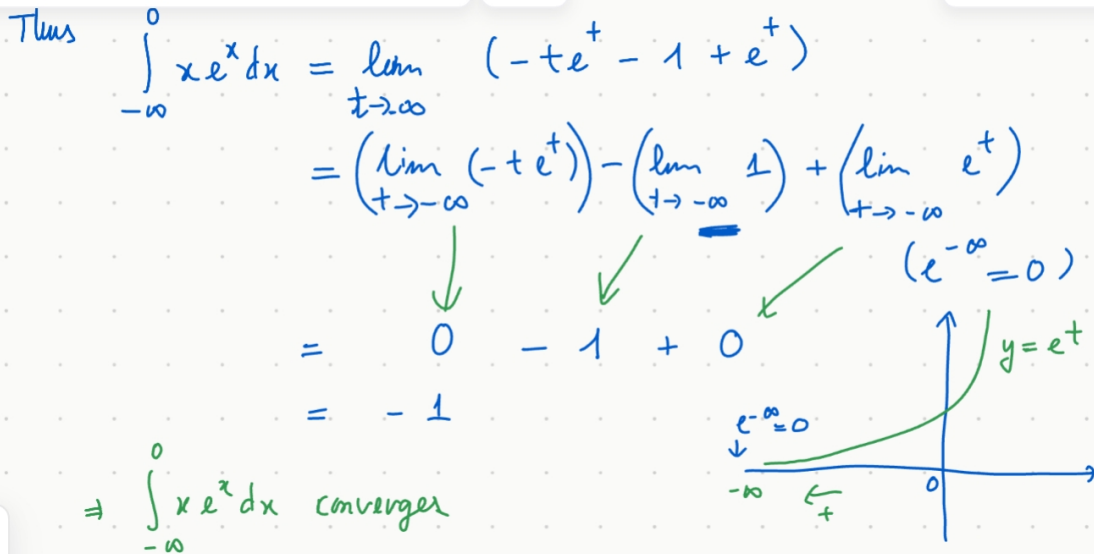 Thus ∫_{-∞}^{0} x e^x dx = lim_{t→∞} (-te^t - 1 + e^t)
= (lim_{t→-∞} (-te^t)) - (lim_{t→-∞} 1) + (lim_{t→-∞} e^t)
(e^{-∞} = 0)
= 0 - 1 + 0
y = e^t
= -1
e^{-∞} = 0
-∞ ← t 0
⇒ ∫_{-∞}^{0} x e^x dx converges